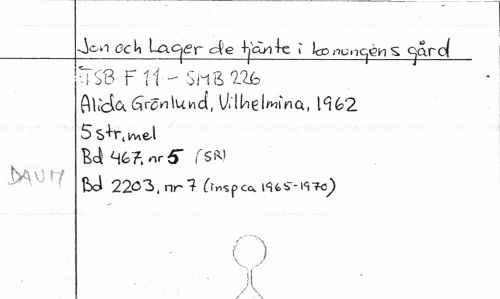 Jon och Lager de tjänte i konungens gård
TSB F 11 - SMB 226
Alida Grönlund, Vilhelmina, 1962
5 str, mel
Bd 467, nr 5 (SR)
DAUM Bd 2203, nr 7 (insp ca 1965-1970)